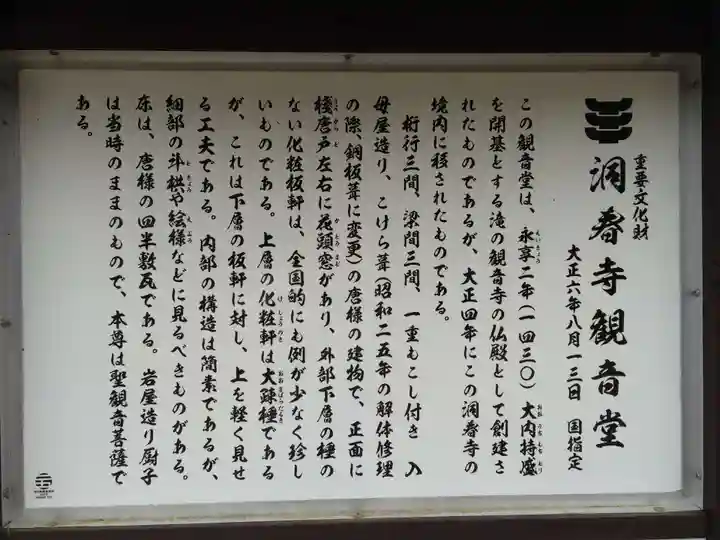 重要文化財
洞春寺観音堂
大正六年八月一三日　国指定
この観音堂は、永享二年(一四三〇)大内持盛
を開基とする滝の観音寺の仏殿として創建さ
れたものであるが、大正四年にこの洞春寺の
境内に移されたものである。
桁行三間、梁間三間、一重もこし付き　入
母屋造り、こけら葺(昭和二五年の解体修理
の際、銅板葺に変更)の唐様の建物で、正面に
棧唐戸左右に花頭窓があり、外部下層の棰の
ない化粧板軒は、全国的にも例が少なく珍し
いものである。上層の化粧軒は大疎棰である
が、これは下層の板軒に対し、上を軽く見せ
る工夫である。内部の構造は簡素であるが、
細部の斗栱や絵様などに見るべきものがある。
床は、唐様の四半敷瓦である。岩屋造り厨子
は当時のままのもので、本尊は聖観音菩薩で
ある。